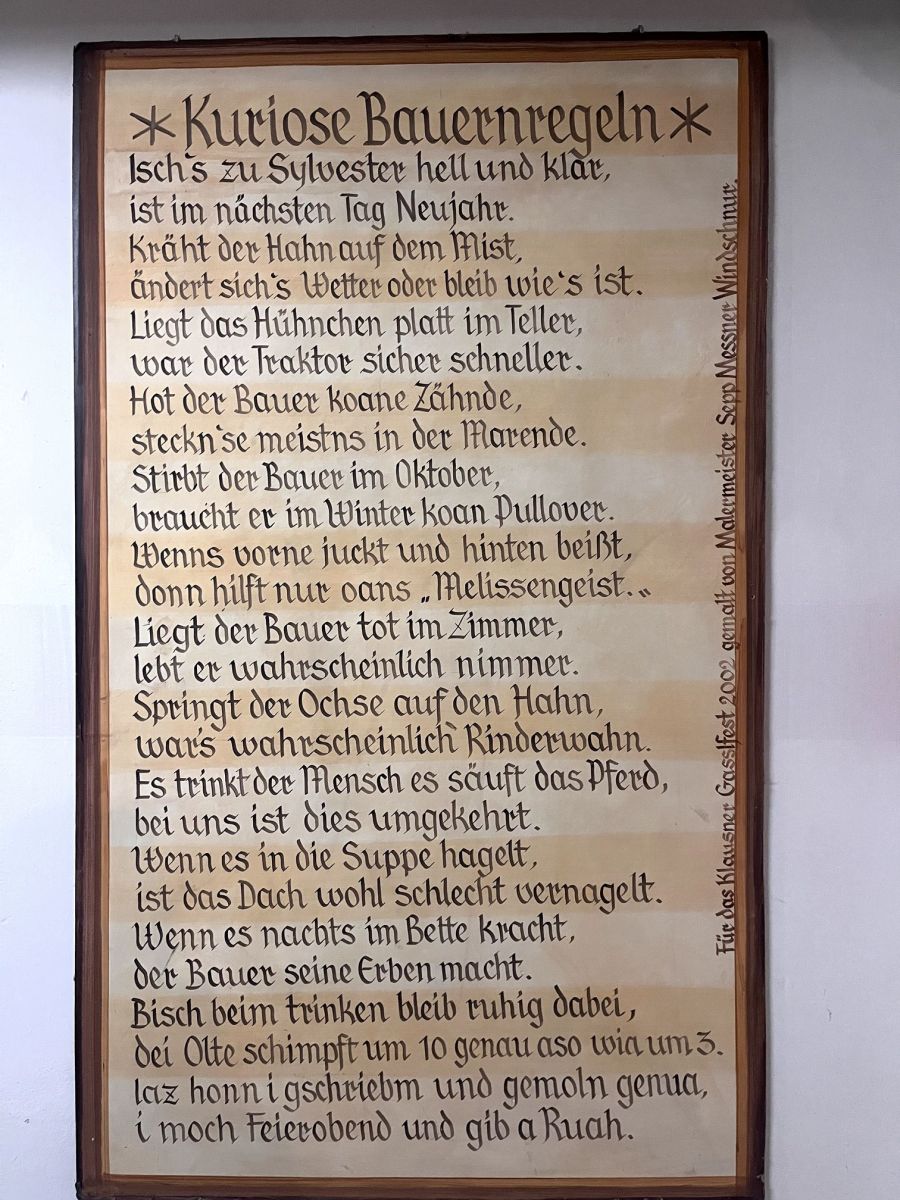 * Kuriose Bauernregeln *
Isch`s zu Sylvester hell und klar,
ist im nächsten Tag Neujahr.
Kräht der Hahn auf dem Mist,
ändert sich`s Wetter oder bleib wie`s ist.
Liegt das Hühnchen platt im Teller,
war der Traktor sicher schneller.
Hot der Bauer koane Zähnde,
steckn`se meistns in der Marende.
Stirbt der Bauer im Oktober,
braucht er im Winter koan Pullover.
Wenns vorne juckt und hinten beißt,
donn hilft nur oans „Melissengeist.„
Liegt der Bauer tot im Zimmer,
lebt er wahrscheinlich nimmer.
Springt der Ochse auf den Hahn,
war's wahrscheinlich Rinderwahn.
Es trinkt der Mensch es säuft das Pferd,
bei uns ist dies umgekehrt.
Wenn es in die Suppe hagelt,
ist das Dach wohl schlecht vernagelt.
Wenn es nachts im Bette kracht,
der Bauer seine Erben macht.
Bisch beim trinken bleib ruhig dabei,
dei Olte schimpft um 10 genau aso wia um 3.
Iaz honn i gschriebm und gemoln genua,
i moch Feierobend und gib a Ruah.
Für das Klausner Gasslfest 2002 gemalt von Malermeister Sepp Messner Windschnur.